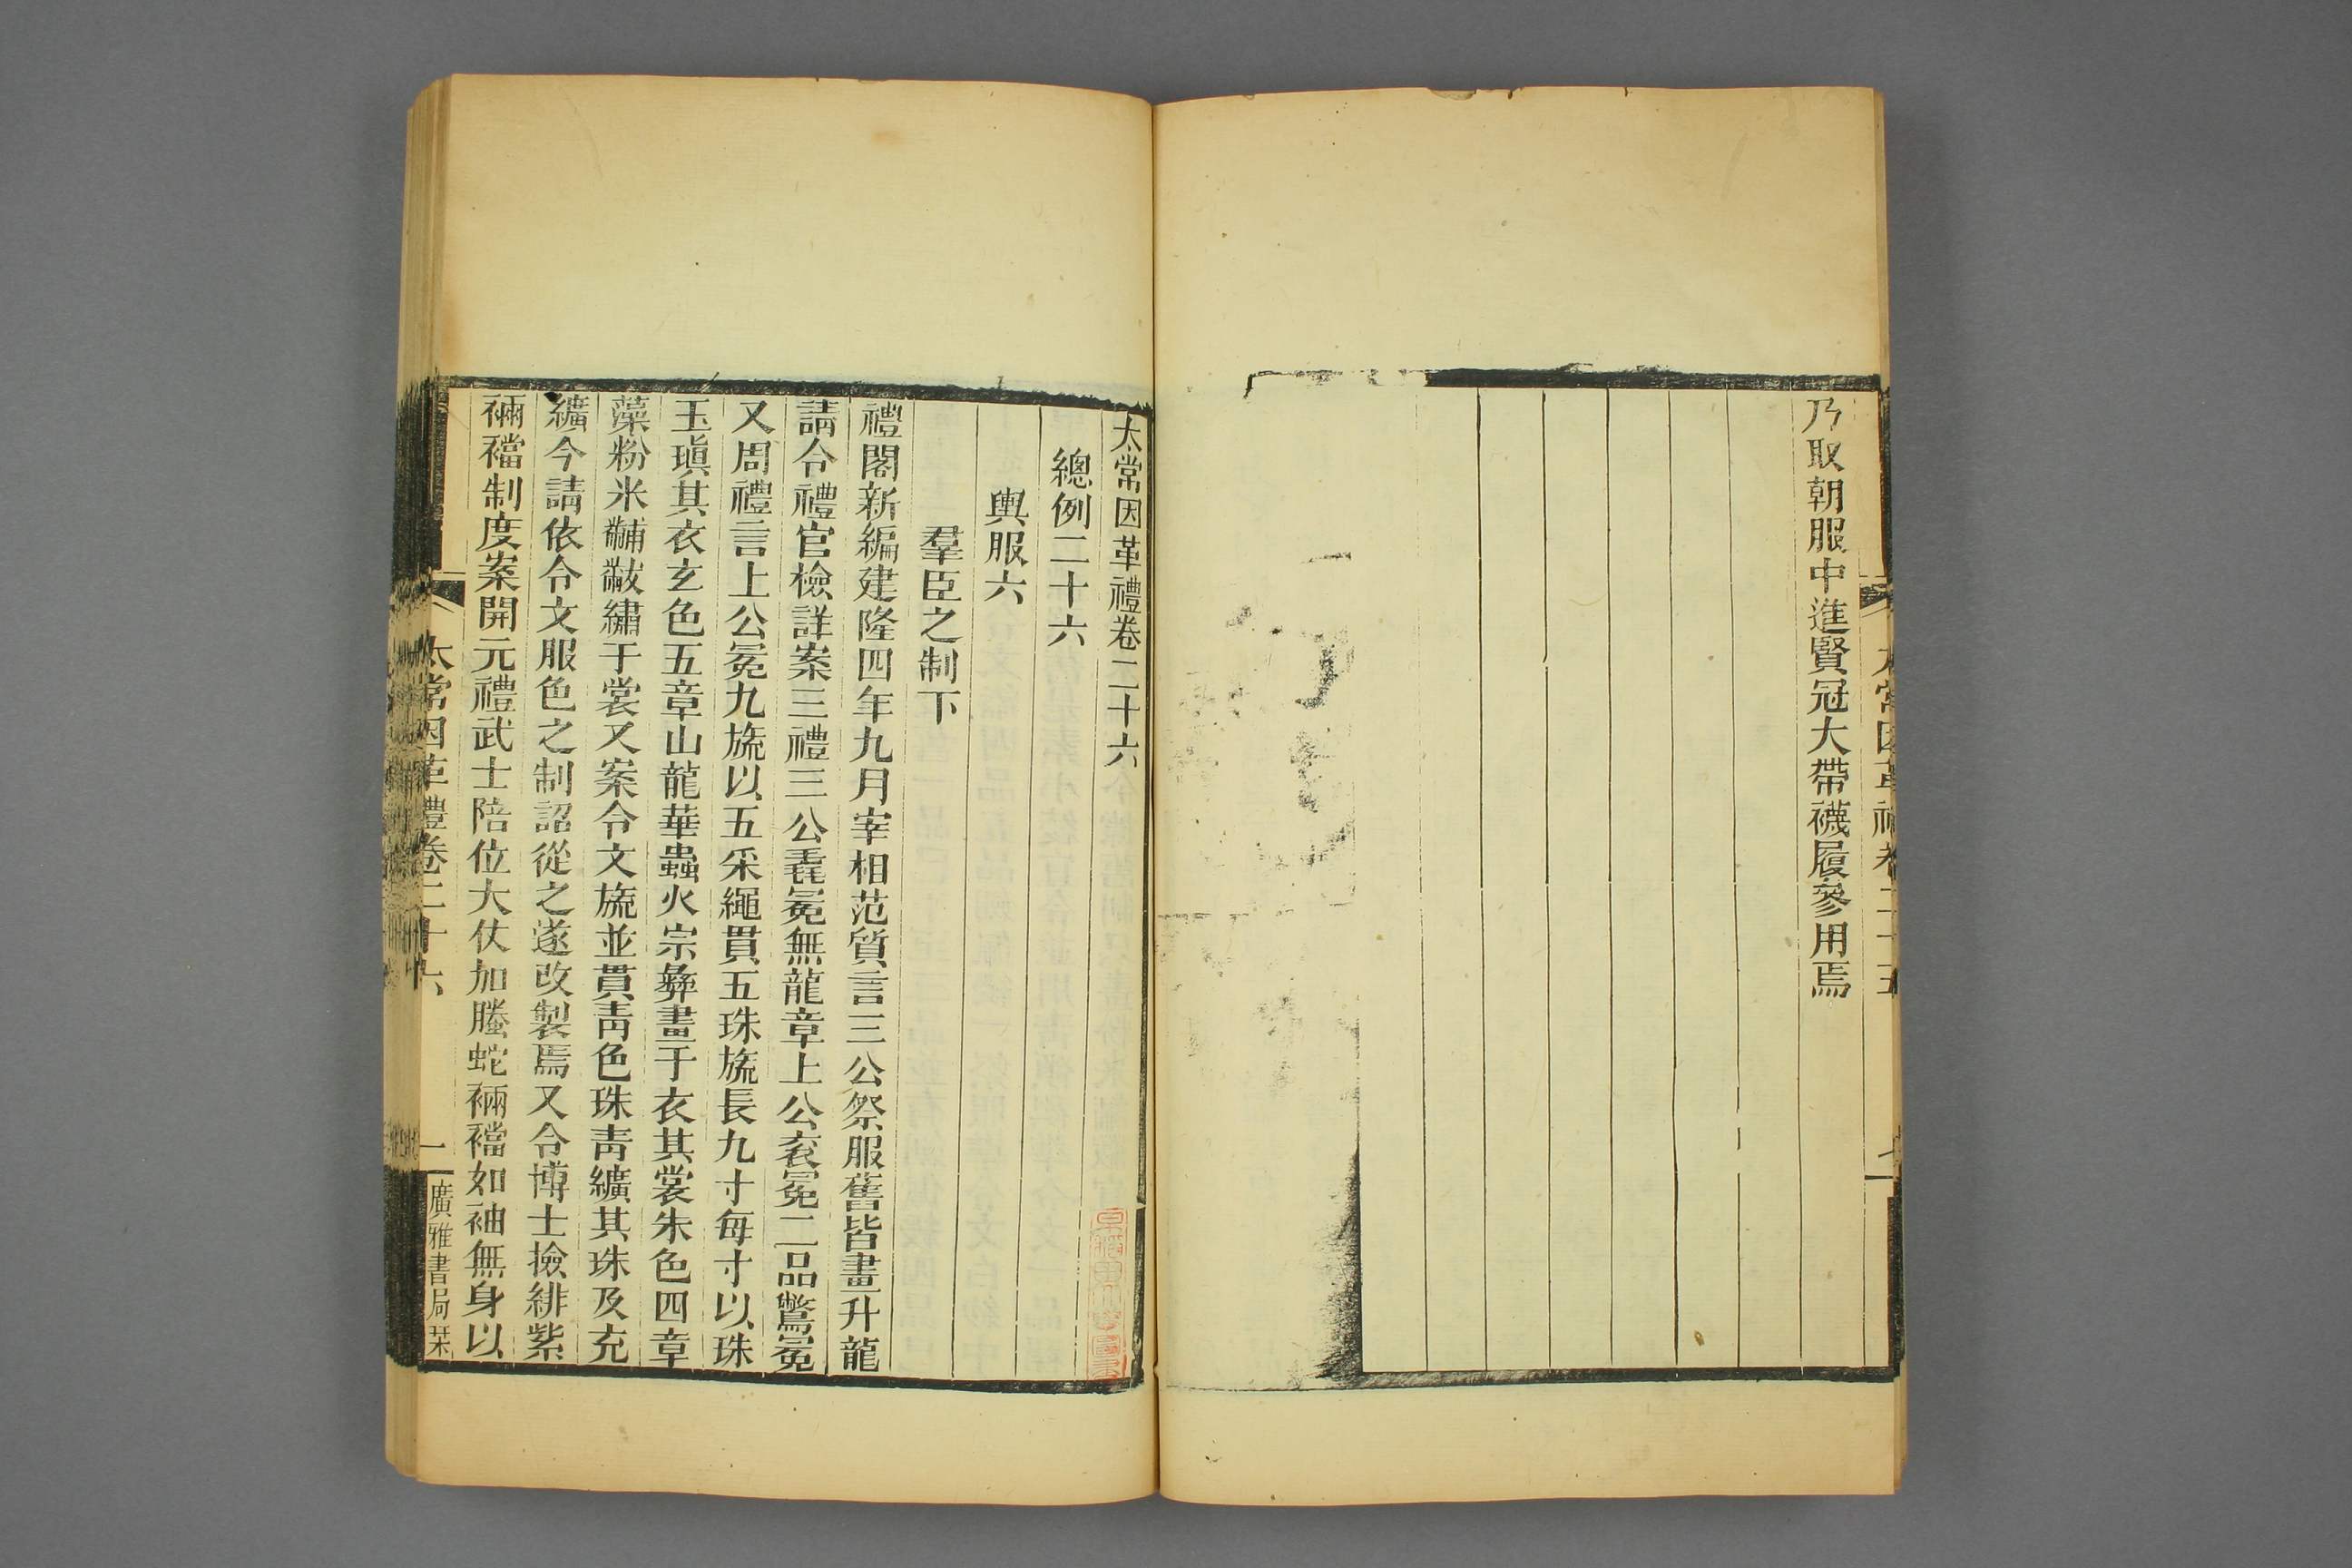 乃取朝服中進賢冠大帶襪履參用焉
太常因革禮卷二十五
太常因革禮卷二十六
總例二十六
輿服六
羣臣之制下
禮閣新編建隆四年九月宰相范質言三公祭服舊皆畫升龍
請令禮官檢詳案三禮三公毳冕無龍章上公衮冕二品鷩冕
又周禮言上公冕九旒以五采繩貫五珠旒長九寸每寸以珠
玉瑱其衣玄色五章山龍華蟲火宗彝畫于衣其裳朱色四章
藻粉米黼黻繡于裳又案令文旒並貫靑色珠靑纊其珠及充
纊今請依令文服色之制詔從之遂改製焉又令博士撿緋紫
裲襠制度案開元禮武士陪位大仗加螣蛇裲襠如袖無身以
太常因革禮卷二十六
一
廣雅書局栞
早稻田大學圖書